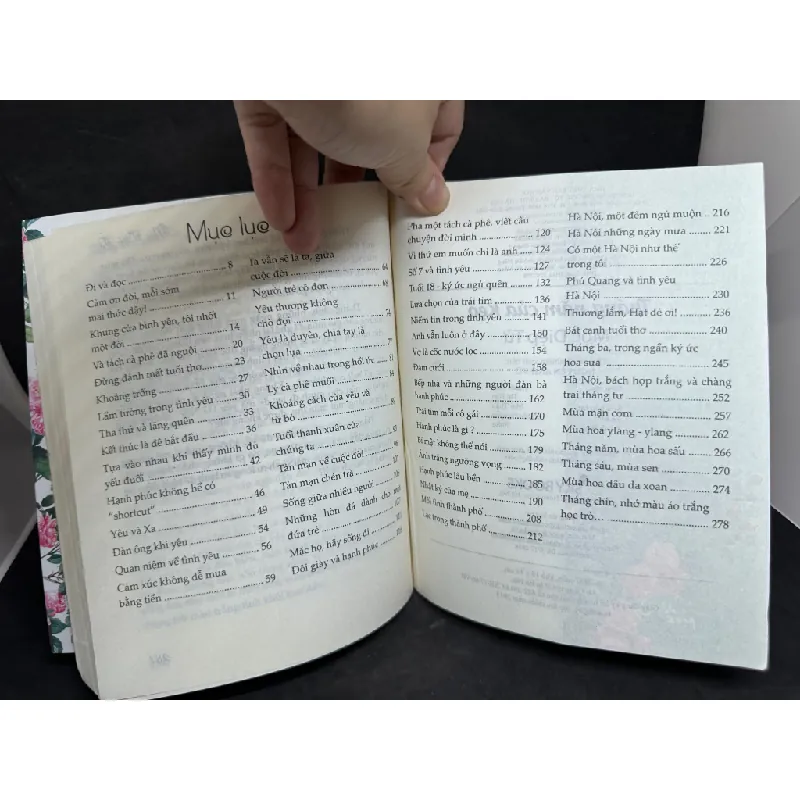 Mục lục
Đi và đọc 8
Cảm ơn đời, mỗi sớm
mai thức dậy! 11
Khung cửa bình yên, tôi nhốt
một đời 14
Và tách cà phê đã nguội 20
Đừng đánh mất tuổi thơ 23
Khoảng trống 27
Lầm tưởng, trong tình yêu 30
Tha thứ và lãng quên 33
Kết thúc là để bắt đầu 36
Tựa vào nhau khi thấy mình đủ
yếu đuối 42
Hạnh phúc không hề có
"shortcut" 46
Yêu và Xa 49
Đàn ông khi yêu 54
Quan niệm về tình yêu 56
Cảm xúc không dễ mua
bằng tiền 59
Ta vẫn sẽ là ta, giữa
cuộc đời 64
Người trẻ cô đơn
Yêu thương không
chờ đợi
Yêu là duyên, chia tay là
chọn lựa
Nhìn về nhau trong hồi ức
Ly cà phê muối
Khoảng cách của yêu và
từ bỏ
Tuổi thanh xuân của
chúng ta
Tản mạn về cuộc đời
Tản mạn chén trà
Sống giữa nhiều người
Những hòn đá dành cho một
đứa trẻ
Mặc họ, hãy sống đi
Đôi giày và hạnh phúc
Pha một tách cà phê, viết câu
chuyện đời mình 120
Vì thứ em muốn chỉ là anh 124
Số 7 và tình yêu 127
Tuổi 18 - ký ức ngủ quên 132
Lựa chọn của trái tim 136
Niềm tin trong tình yêu 141
Anh vẫn luôn ở đây 150
Vợ là cốc nước lọc 154
Đám cưới 158
Bếp nhà và những người đàn bà
hạnh phúc 162
Trái tim mỗi cô gái 170
Hạnh phúc là gì? 175
Bí mật không thể nói 179
Ánh trăng ngưỡng vọng 182
Hạnh phúc lâu bền 185
Nhật ký của mẹ 190
Mối tình thành phố 208
Lạc trong thành phố 212
Hà Nội, một đêm ngủ muộn 216
Hà Nội những ngày mưa 221
Có một Hà Nội như thế
trong tôi 226
Phú Quang và tình yêu
Hà Nội 230
Thương lắm, Hạt dẻ ơi! 236
Bát canh tuổi thơ 240
Tháng ba, trong ngần ký ức
hoa sưa 245
Hà Nội, bách hợp trắng và chàng
trai tháng tư 252
Mùa mận cơm 257
Mùa hoa ylang - ylang 262
Tháng năm, mùa hoa sấu 266
Tháng sáu, mùa sen 270
Mùa hoa dâu da xoan 274
Tháng chín, nhớ màu áo trắng
học trò... 278